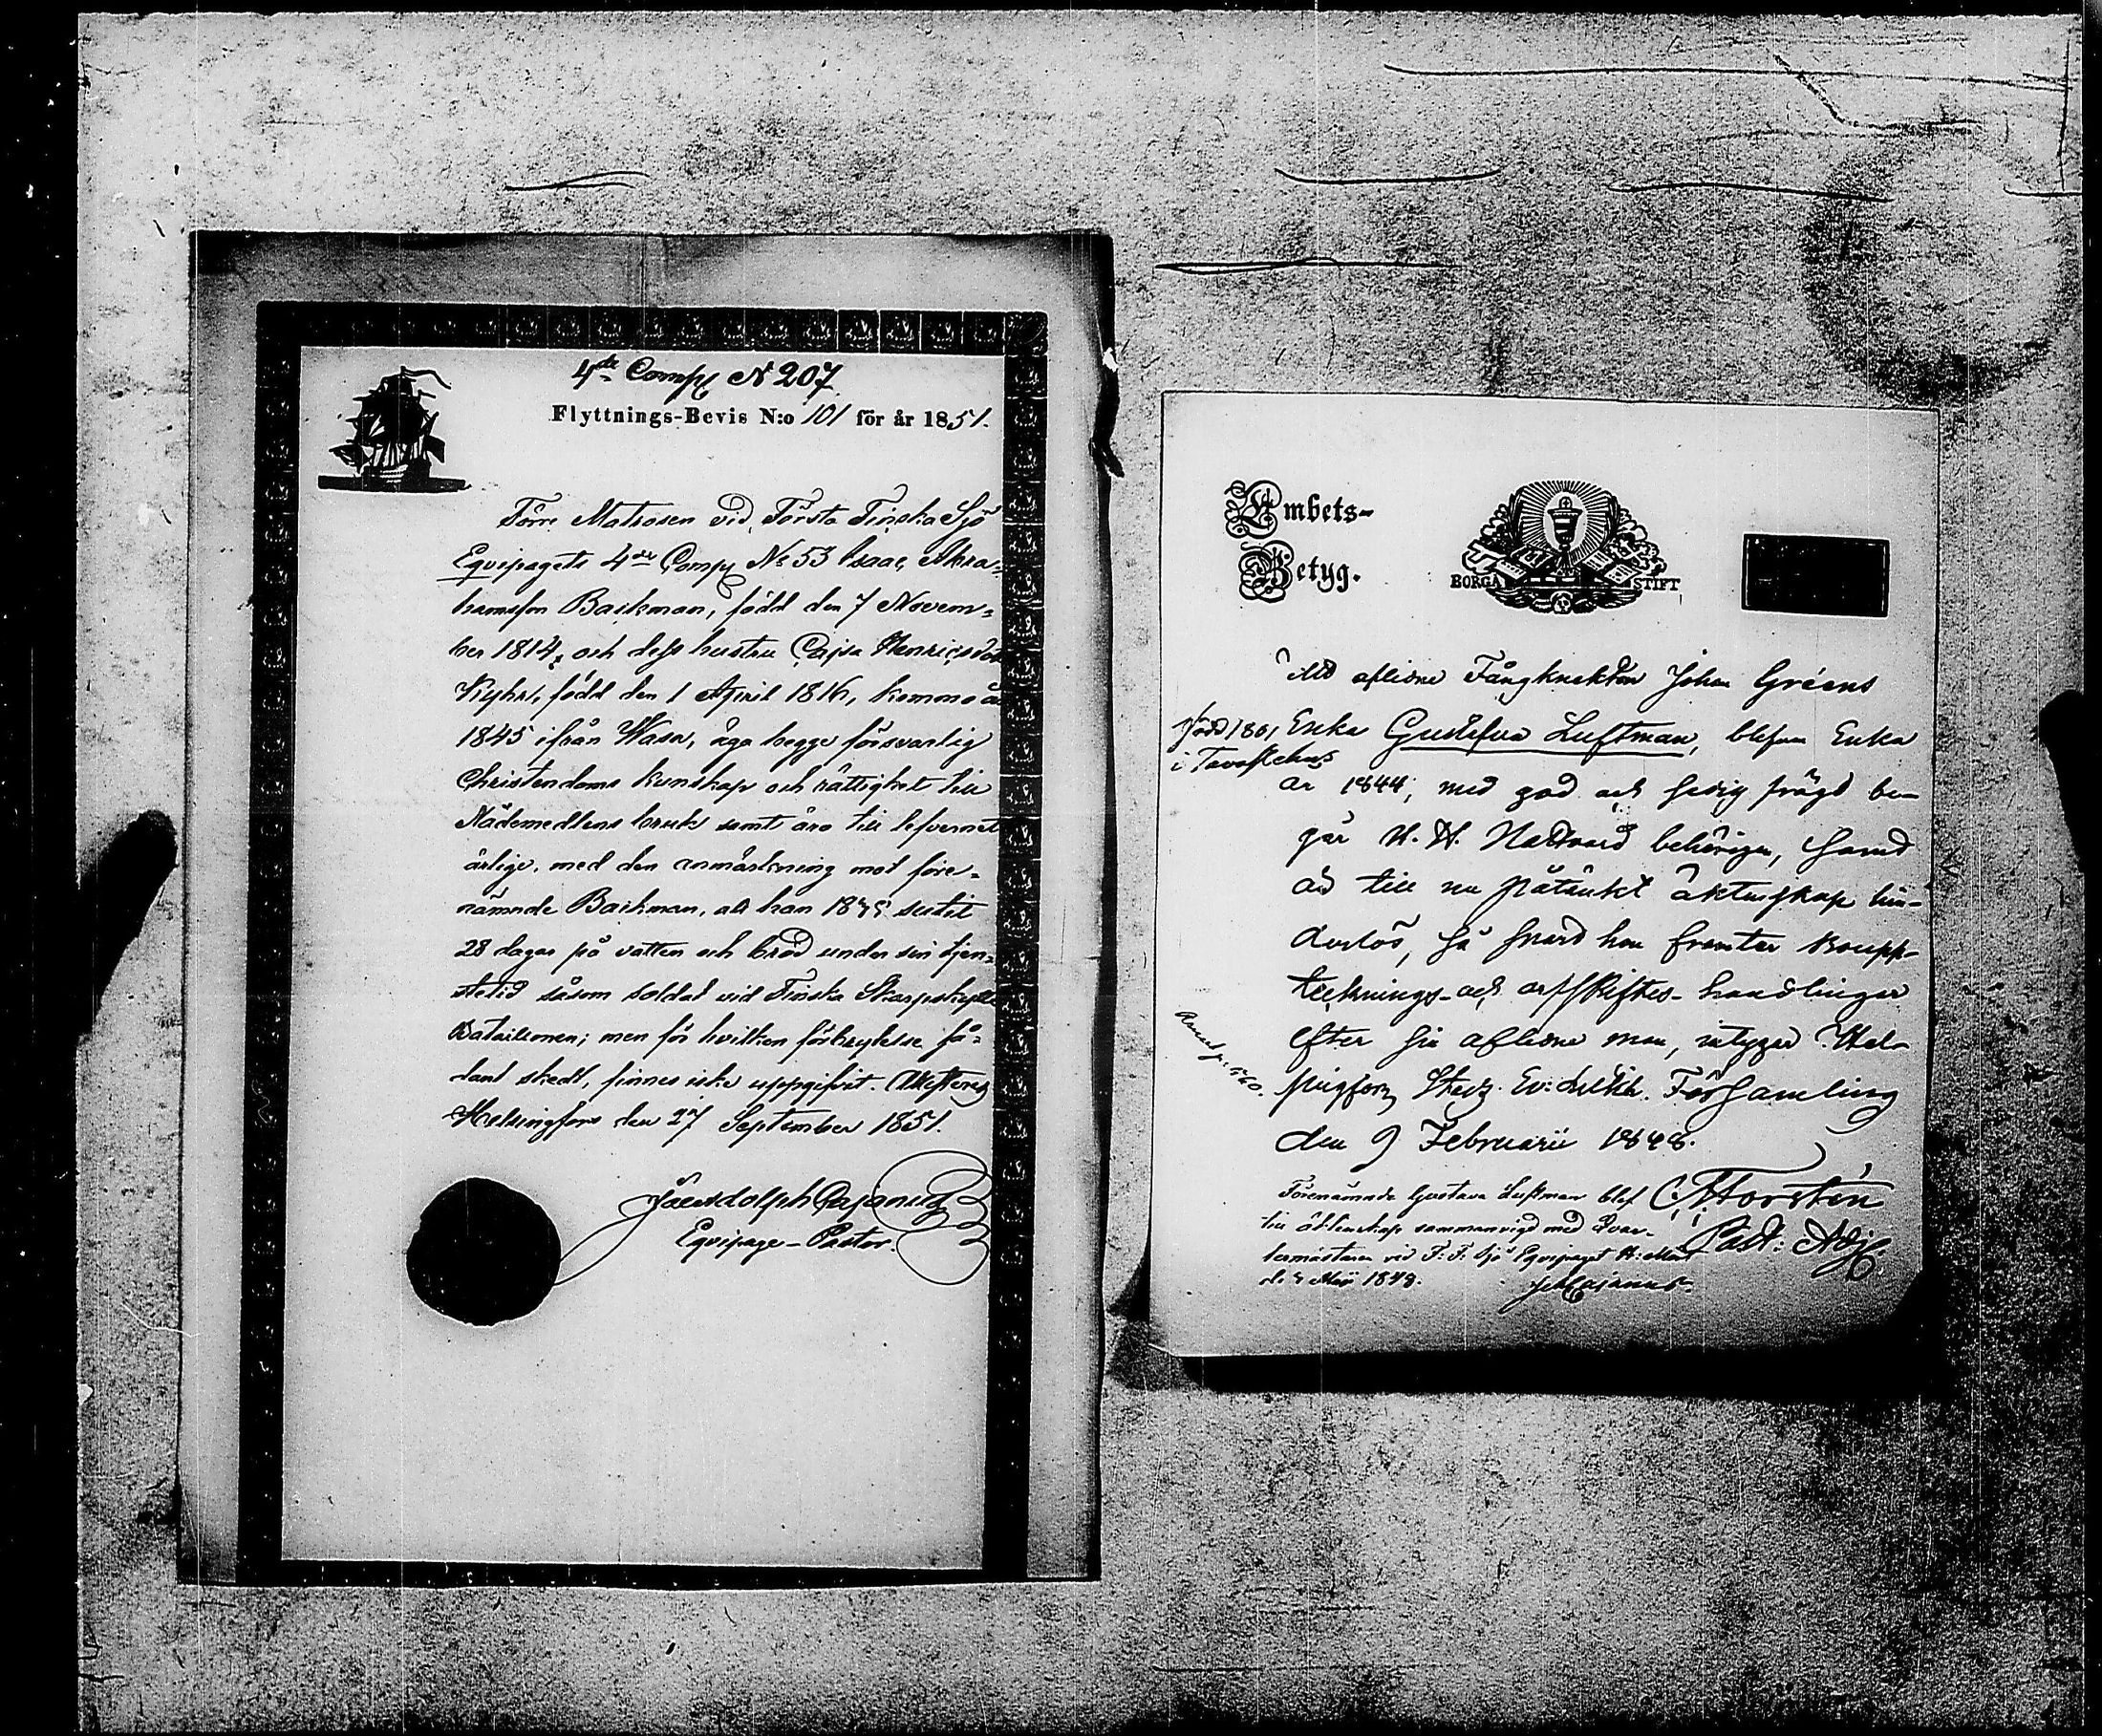 4de Comp N 207
Flyttnings-Bevis N:o 101 för år 1851.
Förre Matrosen vid Första Finska Sjö
Eqvipagets 4de Comp No 53 Isaac Abra-
hamsson Backman, född den 7 Novem-
ber 1814, och dess hustru Cajsa Henricsdotter
född den 1 April 1816, komne år
1845 ifrån Wasa, äga begge försvarlig
Christendoms kunskap och rättighet till
Nådemedlens bruk samt äro till lefvernet
ärlige, med den anmärkning mot före-
nämnde Backman, att han suttit
28 dagar på vatten och bröd under sin tjen-
stetid såsom soldat vid Finska Skarpskytte
Bataillonen; men för hvilken förbrytelse så-
dant skedt, finnes icke uppgifvit. Attesteras
Helsingfors den 27 September 1851.
Eqvipage-Pastor.
Embets-
Betyg.
BORGÅ STIFT
Att aflidne Fångknekten Johan Gréens
född 1801 i Tavastehus
Enka Gustafva Luftman, blefven Enka
år 1844, med god och sedig frägd be-
går H. H. Nattvard behörigen, samt
är till nu påtänkt äktenskap hin-
derlös, så snart hon framter Bouppt-
tecknings- och arfskiftes-handlingar
efter sin aflidne man, intygar Hel-
singfors Stads Ev: Luth. Församling
den 9 Februarii 1848.
C. Horstén
Past: Adj.
Förenämnda Gustava Luftman blef
till äktenskap sammanvigd med Qvar-
termästaren vid F. F. Sjö Eqvipaget
1848.